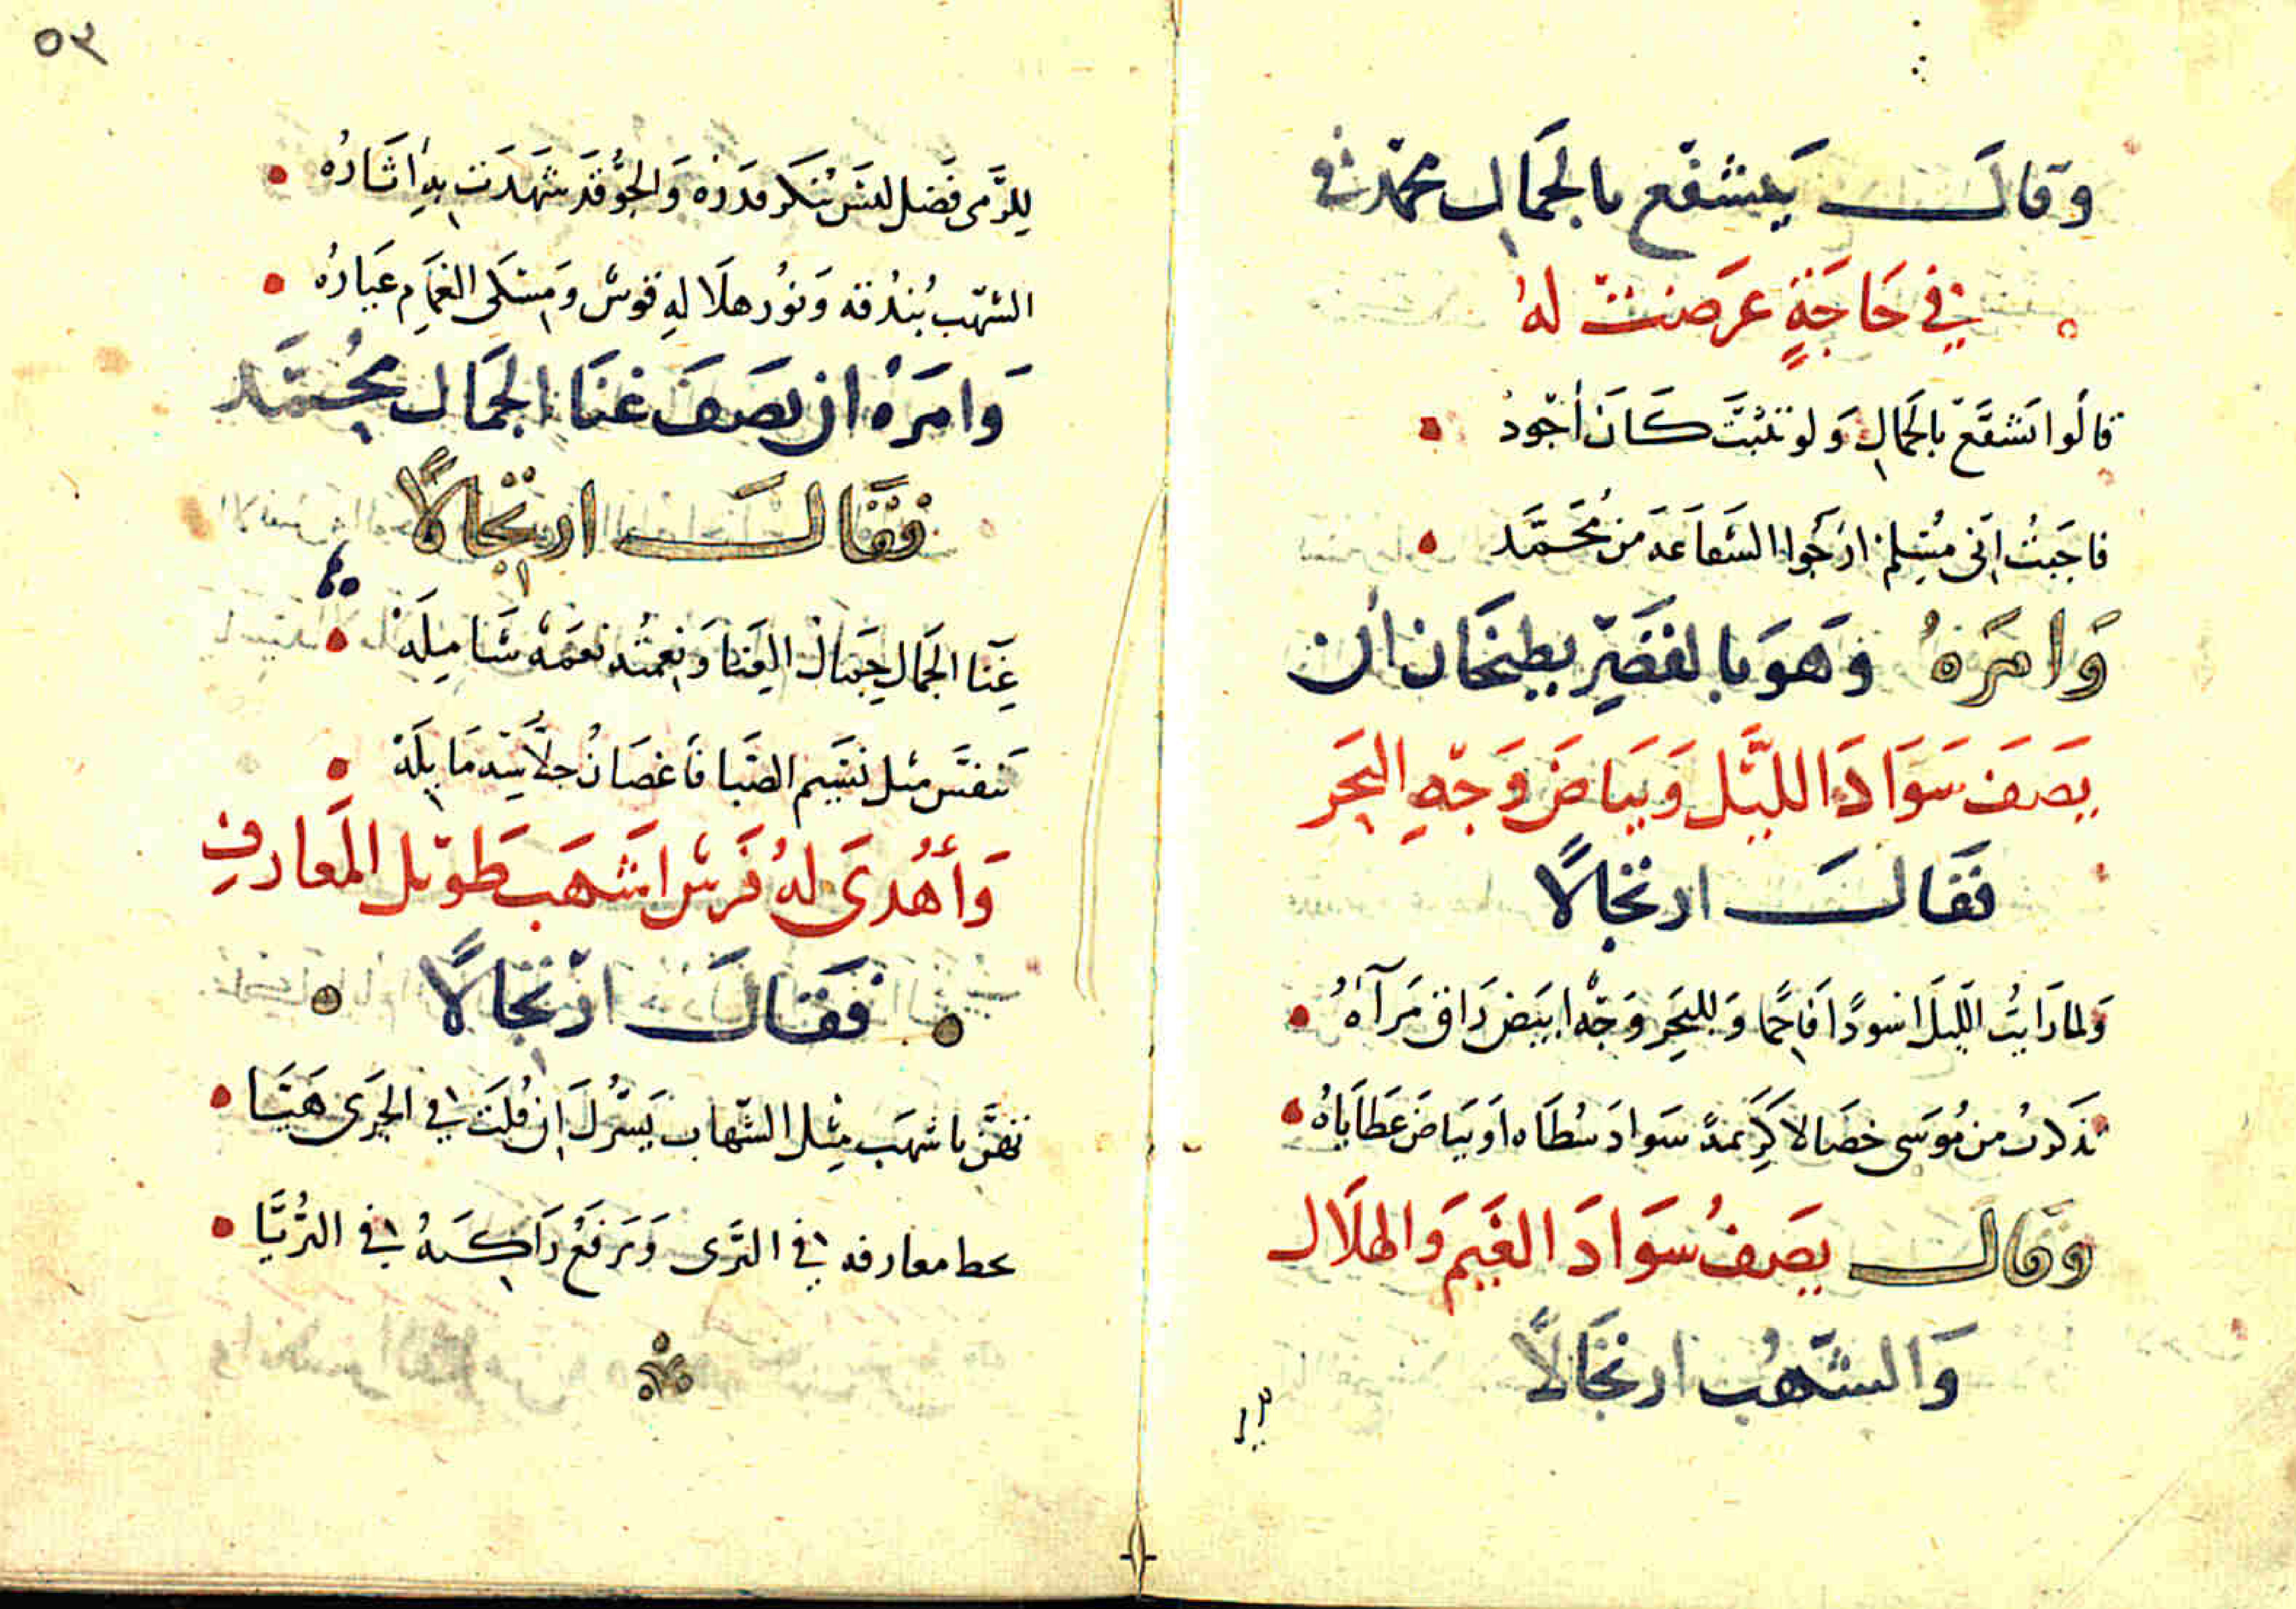 وقال يتشفع بالجمال محمد في
في حَاجَةٍ عَرضت لهُ
قالوا تشفَّع بالجمالِ وَلو تثبَّت كَانَ أجود
فاجَبتُ انى مُسلم ارجُوا الشفاعَة من مُحَمَّد
وَامرَهُ وَهوَ بالقصَير بطنخَان ان
يصَف سَوَادَ الليَّل وَبيَاضَ وَجهِ البحَر
فقَالَ ارتجالاً
وَلمارَايتُ الليلَ اسودًا فاحِمًا وَللبحَرِ وَجْه ابيَض رَاق مَرآهُ
تذَكرتُ من مُوسَى خصَالا كَرِيمةً سَوادَ سُطَاه اوبيَاضَ عَطاَياهُ
وَقال يصَفُ سَوَادَ الغَيم وَالهلَال
وَالشُهب ارتجَالاً
٥٢
لِلرَّمى فَضل ليسَ يُنكَر قدَرهُ وَالجوُّ قدَ شَهدَت بهِ اثَارُه
الشهب بُندُقه وَنوُر هلَالهِ قوسٌ وَمِسكى الغمَامِ غبَارُه
وَامرَهُ ان يصَفَ غنَا الجمَال محُمَّد
فقَالَ ارتجَالاً
غِنَا الجمَال جمَال الغِنَا وَنِعمتُه نعمَة شَامِلَة
تنفسَ مثل نسَيم الصَبا فاَغصَانُ جلاَّسِه مَايلَة
وَأهُدىَ لهُ فَرسْ اشَهَب طَويل المَعارفِ
فقَالَ ارْتجَالاً
تهَنّ باشهَب مِثل الشهاب يَسُرلَ ان قُلتَ في الجَرَى هَيَّا
تحط معارفه في الثرَى وَترَفَعْ رَاكِبَهُ في الثُريَّا